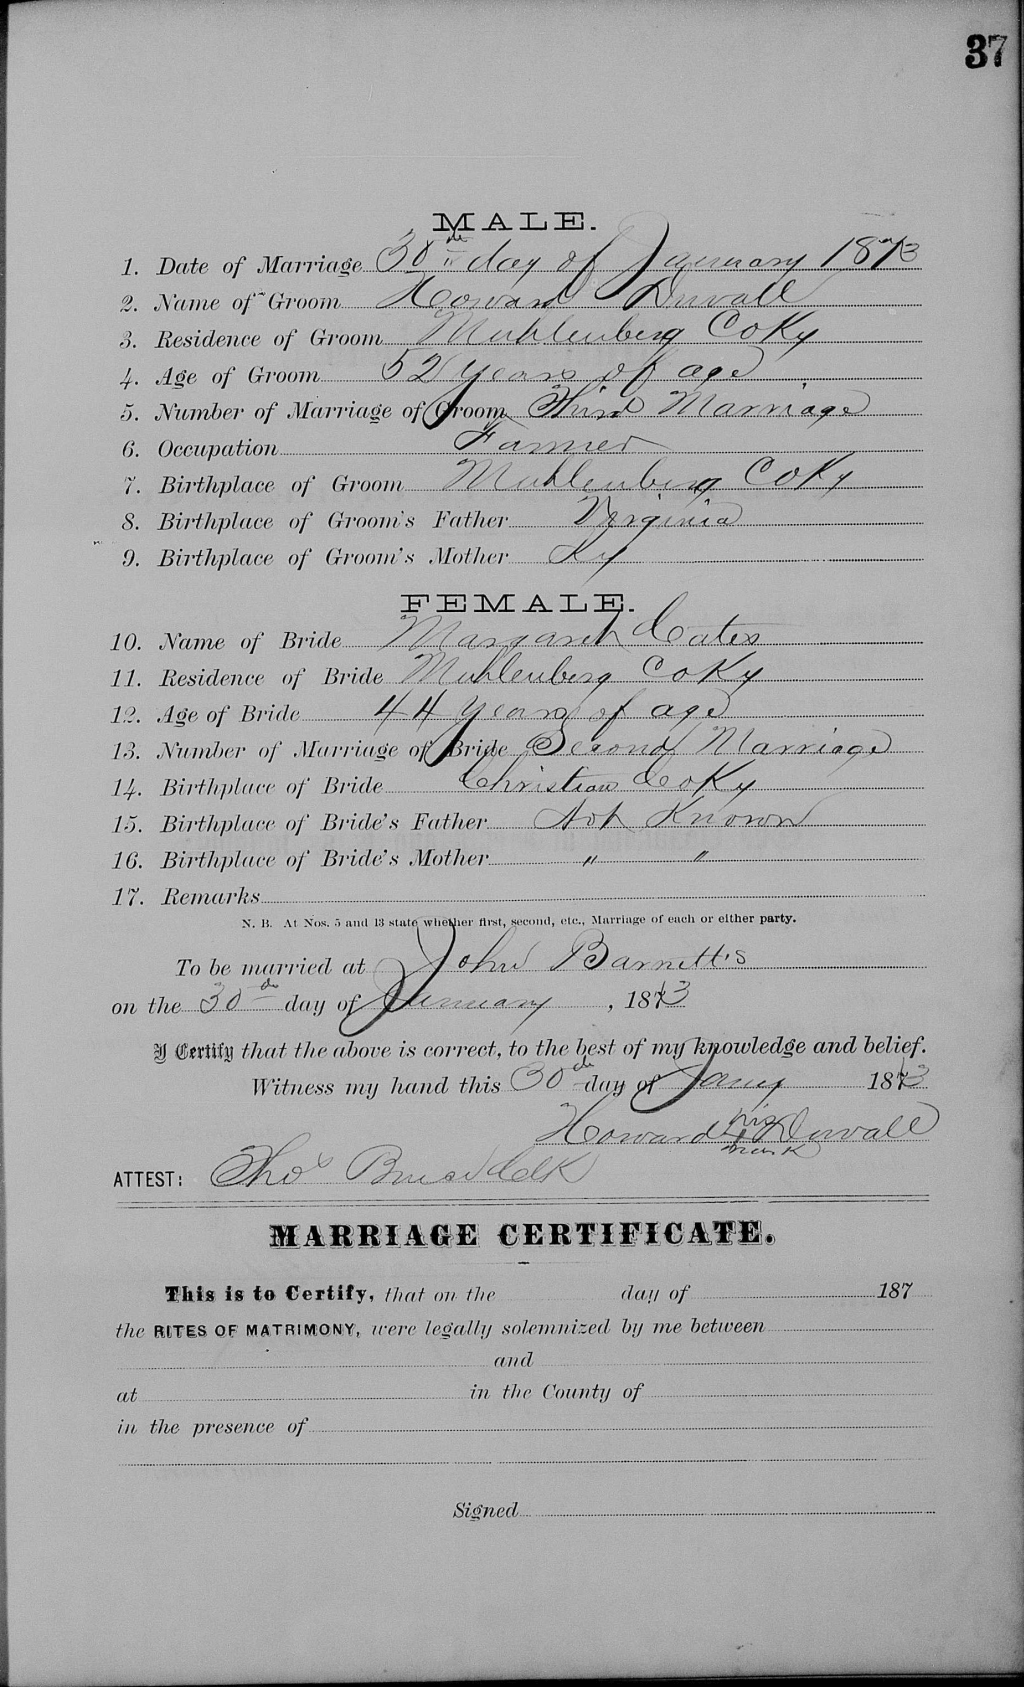 37
MALE.
1. Date of Marriage 30th day of January 1873
2. Name of Groom Howard Duvall
3. Residence of Groom Muhlenberg Co Ky
4. Age of Groom 52 years of age
5. Number of Marriage of Groom Third Marriage
6. Occupation Farmer
7. Birthplace of Groom Muhlenberg Co Ky
8. Birthplace of Groom's Father Virginia
9. Birthplace of Groom's Mother Ky
FEMALE.
10. Name of Bride Margaret Cates
11. Residence of Bride Muhlenberg Co Ky
12. Age of Bride 44 years of age
13. Number of Marriage of Bride Second Marriage
14. Birthplace of Bride Christian Co Ky
15. Birthplace of Bride's Father Not Known
16. Birthplace of Bride's Mother " "
17. Remarks
N. B. At Nos. 5 and 13 state whether first, second, etc., Marriage of each or either party.
To be married at John Barnett's
on the 30th day of January, 1873
I Certify that the above is correct, to the best of my knowledge and belief.
Witness my hand this 30th day of Jany 1873
Howard his mark Duvall
ATTEST: Thos Clk
MARRIAGE CERTIFICATE.
This is to Certify, that on the day of 187
the RITES OF MATRIMONY, were legally solemnized by me between
and
at in the County of
in the presence of
Signed